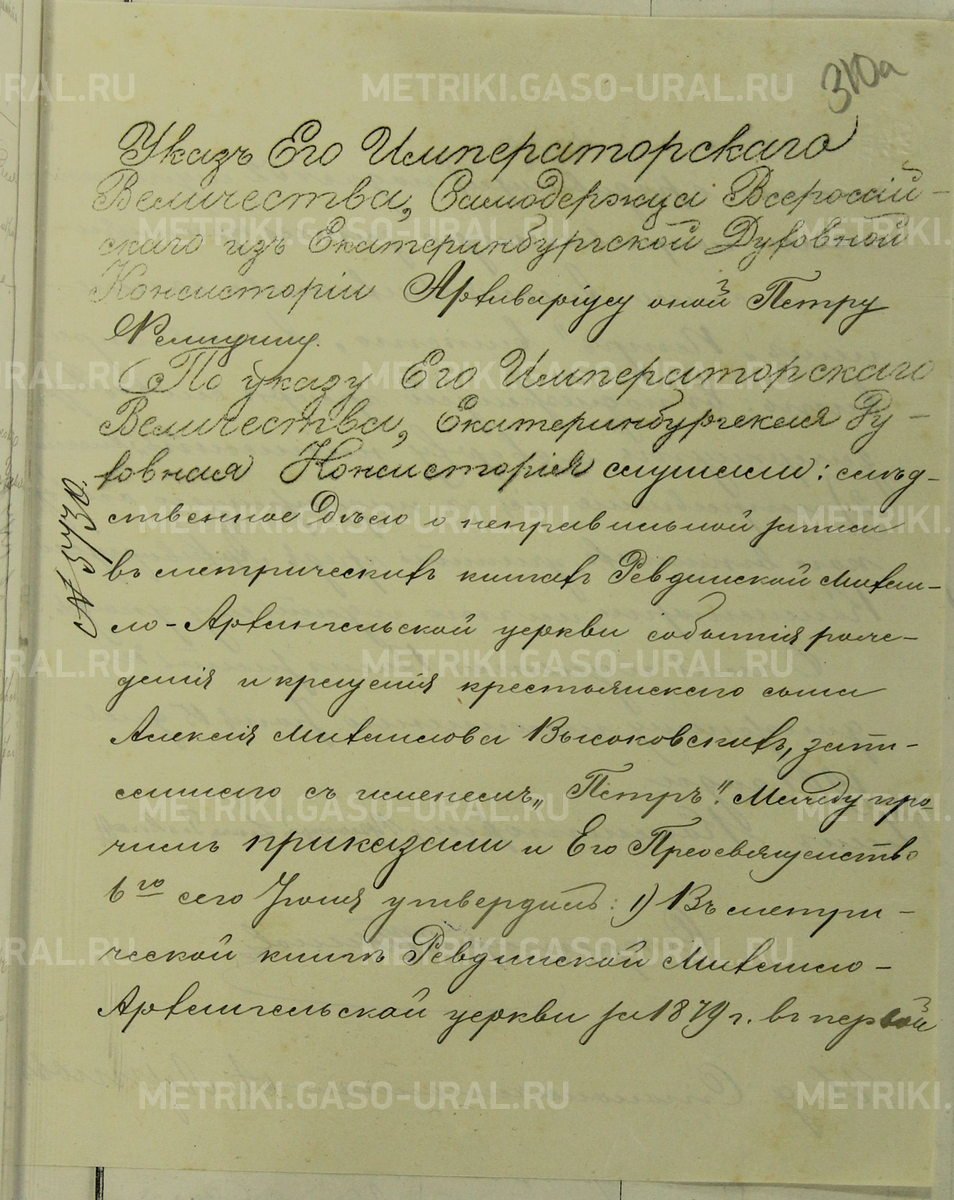 310а
Указъ Его Императорскаго
Величества, Самодержца Всеросій-
скаго изъ Екатеринбургской Духовной
Консисторіи Архиваріусу оной Петру
По указу Его Императорскаго
Величества, Екатеринбургская Ду-
ховная Консисторія слушали: слѣд-
ственное дѣло о неправильной записи
въ метрическихъ книгахъ Ревдинской Михаи-
ло-Архангельской церкви событія рож-
денія и крещенія крестьянскаго сына
Алексія Михаилова Высоковскихъ, запи-
саннаго съ именемъ „Петръ". Между про
чимъ приказали и Его Преосвященство
6го сего Іюня утвердилъ: 1) Въ метри-
ческой книгѣ Ревдинской Михаило-
Архангельской церкви за 1879 г. въ первой
№ 5730.
METRIKI.GASO-URAL.RU